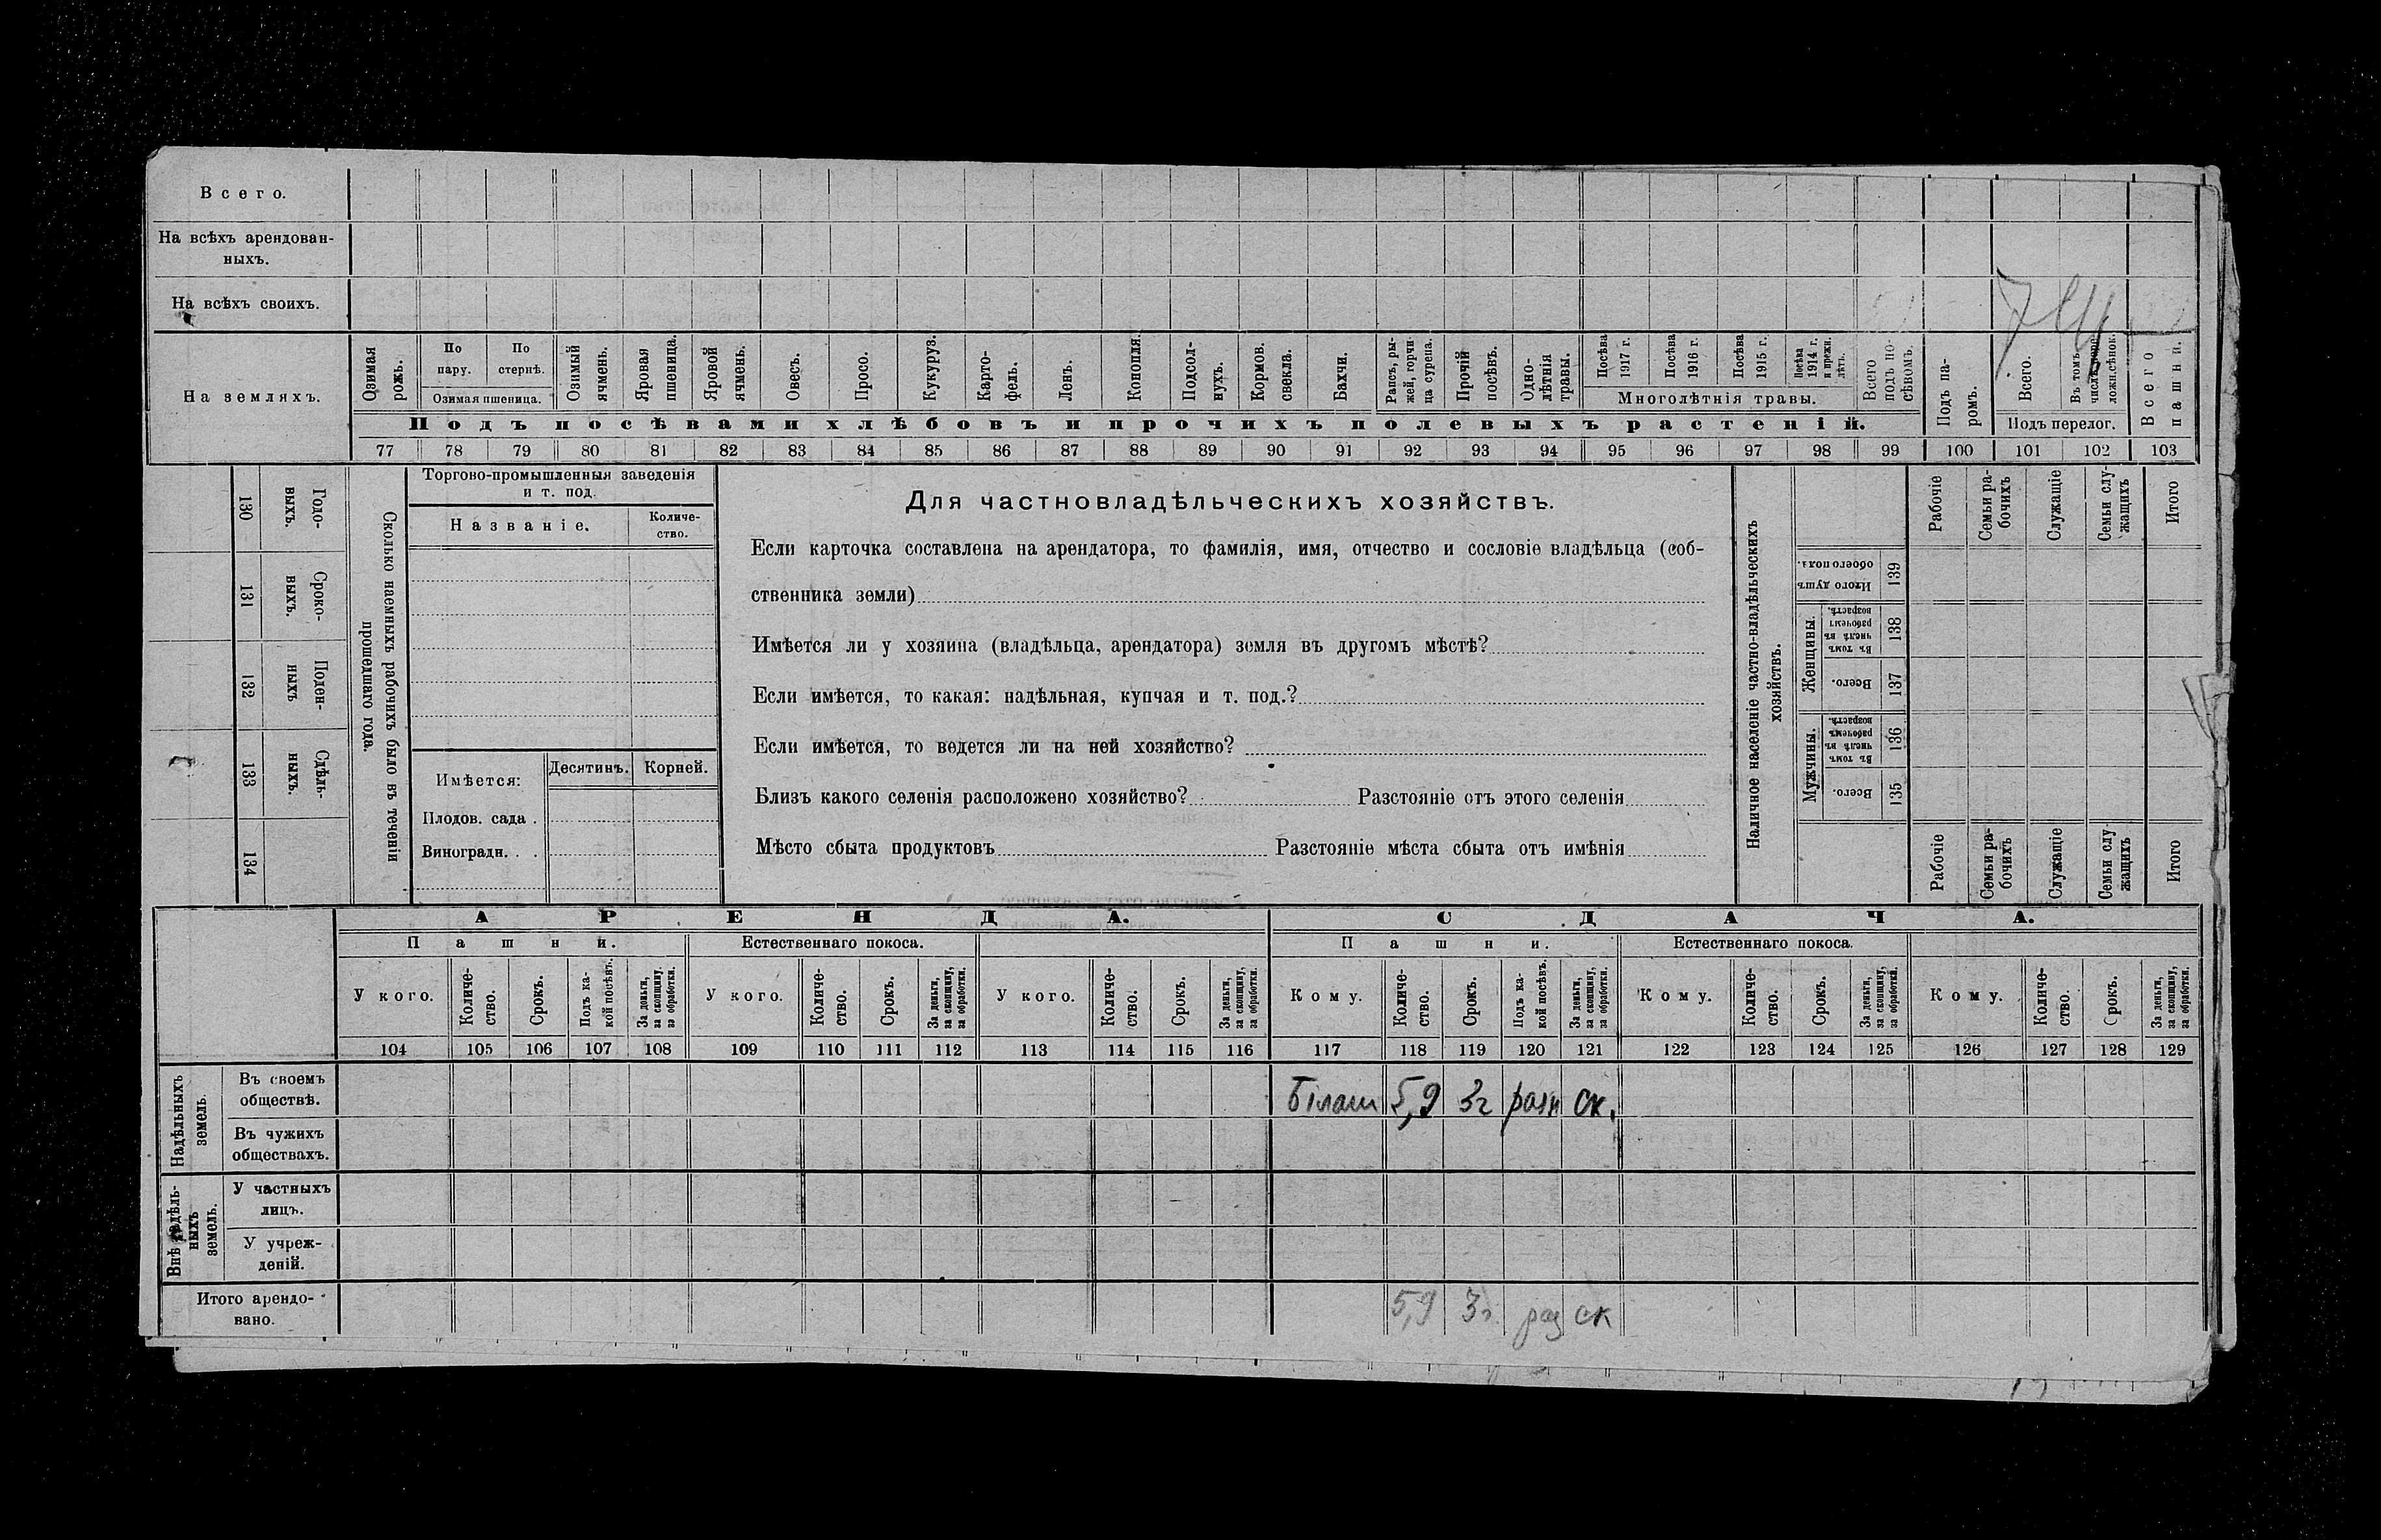 Всего.
На всѣхъ арендован-
ныхъ.
На всѣхъ своихъ.
На земляхъ.
Озимая рожь.
По пару.
По стернѣ.
Озимая пшеница.
Озимый ячмень.
Яровая пшеница.
Яровой ячмень.
Овесъ.
Просо.
Кукуруз.
Карто-
фель.
Ленъ.
Конопля.
Подсол-
нухъ.
Кормов. свекла.
Бахчи.
Рапсъ, ры-
жей, горчи-
ца сурепа.
Прочій посѣвъ.
Одно-
лѣтнія травы.
Посѣва 1917 г.
Посѣва 1916 г.
Посѣва 1915 г.
Посѣва 1914 г. и прежн. лѣтъ.
Многолѣтнія травы.
Всего подъ по-
сѣвомъ.
Подъ па-
ромъ.
Всего.
Въ томъ
Подъ перелог.
Всего пашни.
Подъ посѣвами хлѣбовъ и прочихъ полевыхъ растеній.
77 78 79 80 81 82 83 84 85 86 87 88 89 90 91 92 93 94 95 96 97 98 99 100 101 102 103
130 Годо-
выхъ.
131 Сроко-
выхъ.
132 Поден-
ныхъ
133 Сдѣль-
ныхъ.
134
Сколько наемныхъ рабочихъ было въ теченіи
прошедшаго года.
Торгово-промышленныя заведенія
и т. под.
Названіе.
Количе-
ство.
Имѣется:
Десятинъ.
Корней.
Плодов. сада .
Виноградн. . .
Для частновладѣльческихъ хозяйствъ.
Если карточка составлена на арендатора, то фамилія, имя, отчество и сословіе владѣльца (соб-
ственника земли)
Имѣется ли у хозяина (владѣльца, арендатора) земля въ другомъ мѣстѣ?
Если имѣется, то какая: надѣльная, купчая и т. под.?
Если имѣется, то ведется ли на ней хозяйство?
Близъ какого селенія расположено хозяйство? Разстояніе отъ этого селенія
Мѣсто сбыта продуктовъ Разстояніе мѣста сбыта отъ имѣнія
Наличное населеніе частно-владѣльческихъ
хозяйствъ.
Рабочіе
Семьи ра-
бочихъ
Служащіе
Семьи слу-
жащихъ
Итого
Итого душъ обоего пола.
139
Женщины.
Въ томъ числѣ въ рабочемъ возрастѣ.
138
Всего.
137
Мужчины.
Въ томъ числѣ въ рабочемъ возрастѣ.
136
Всего.
135
Рабочіе
Семьи ра-
бочихъ
Служащіе
Семьи слу-
жащихъ
Итого
АРЕНДА. СДАЧА.
Пашни. Естественнаго покоса. Пашни. Естественнаго покоса.
У кого.
Количе-
ство.
Срокъ.
Подъ ка-
кой посѣвъ.
За деньги,
за скопщину,
за обработки.
У кого.
Количе-
ство.
Срокъ.
За деньги,
за скопщину,
за обработки.
У кого.
Количе-
ство.
Срокъ.
За деньги,
за скопщину,
за обработки.
Кому.
Количе-
ство.
Срокъ.
Подъ ка-
кой посѣвъ.
За деньги,
за скопщину,
за обработки.
Кому.
Количе-
ство.
Срокъ.
За деньги,
за скопщину,
за обработки.
Кому.
Количе-
ство.
Срокъ.
За деньги,
за скопщину,
за обработки.
104 105 106 107 108 109 110 111 112 113 114 115 116 117 118 119 120 121 122 123 124 125 126 127 128 129
Надѣльныхъ
земель.
Въ своемъ
обществѣ.
Білаш 5,9 3г разн ск.
Въ чужихъ
обществахъ.
Внѣ надѣль-
ныхъ
земель.
У частныхъ
лицъ.
У учреж-
деній.
Итого арендо-
вано.
5,9 3г. раз ск